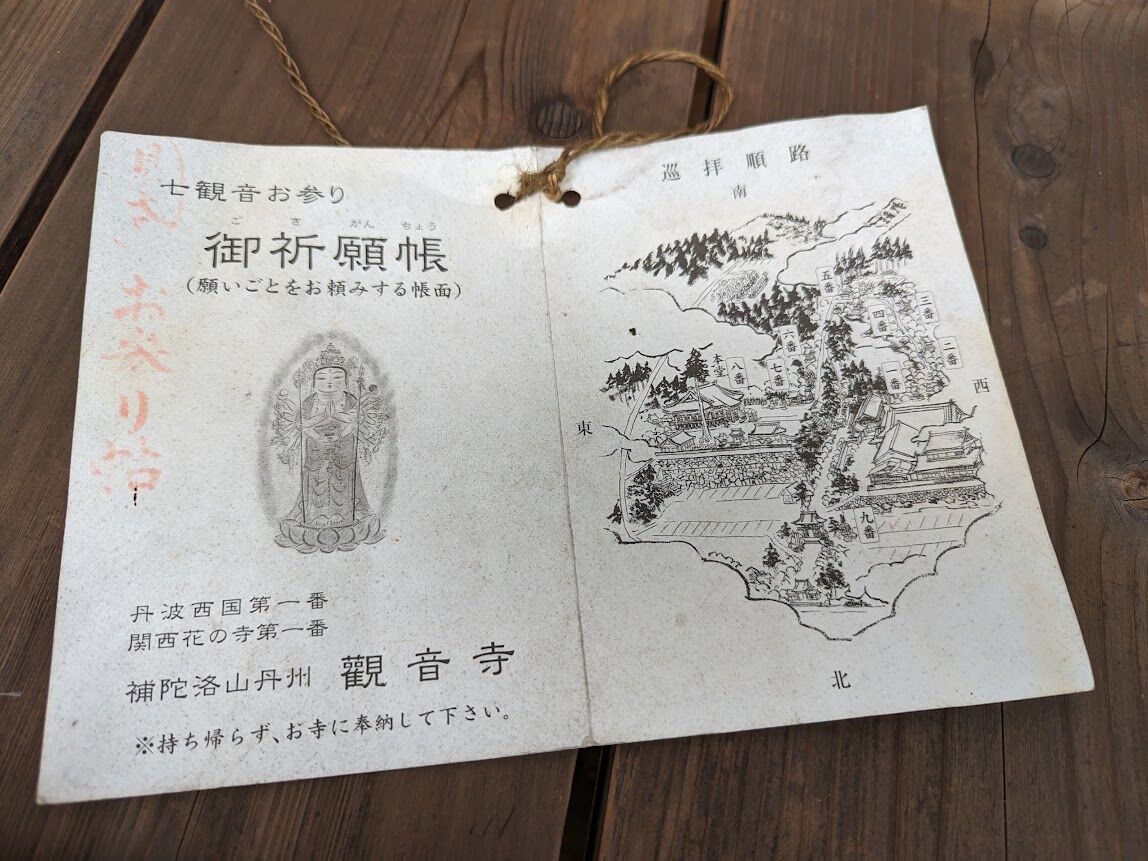 七観音お参り
ご き がん ちょう
御祈願帳
(願いごとをお頼みする帳面)
お参り帖
丹波西国第一番
関西花の寺第一番
補陀洛山丹州 觀音寺
※持ち帰らず、お寺に奉納して下さい。
巡拝順路
南
五番
三番
四番
二番
六番
七番
八番
本堂
一番
西
東
九番
北